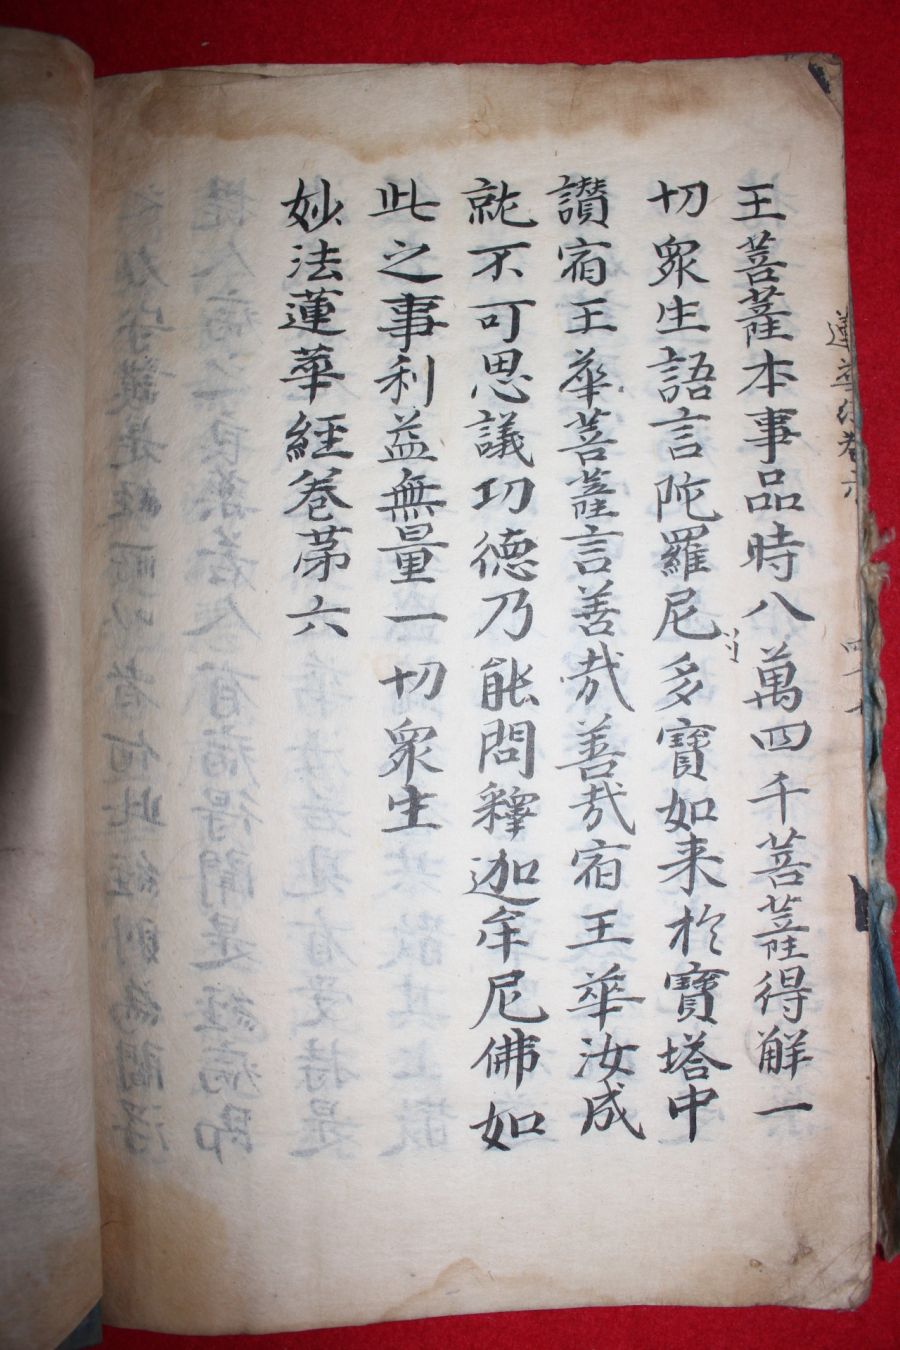 王菩薩本事品時八萬四千菩薩得解一
切衆生語言陀羅尼多寶如来於寶塔中
讃宿王華菩薩言善哉善哉宿王華汝成
就不可思議功德乃能問釋迦牟尼佛如
此之事利益無量一切衆生
妙法蓮華經卷苐六